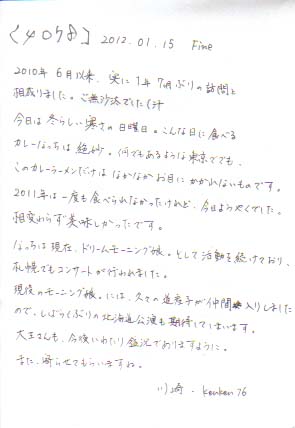 〔4078〕 2012.01.15 Fine
2010年6月以来、実に1年7ヶ月ぶりの訪問と
相成りました。ご無沙汰でした（汁
今日は冬らしい寒さの日曜日。こんな日に食べる
カレーなっちは絶妙。何でもあるような東京ででも、
このカレーラーメンだけはなかなかお目にかかれないものです。
2011年は一度も食べられなかったけれど、今日ようやくでした。
相変わらず美味しかったです。
なっちは現在、ドリームモーニング娘。として活動を続けており、
札幌でもコンサートが行われました。
現役のモーニング娘。には、久々の道産子が仲間入りしました
ので、しばらくぶりの北海道公演も期待してしまいます。
大王さんも、今後いわたり盛況でありますように。
また、寄らせてもらいますね。
川崎・kenken76